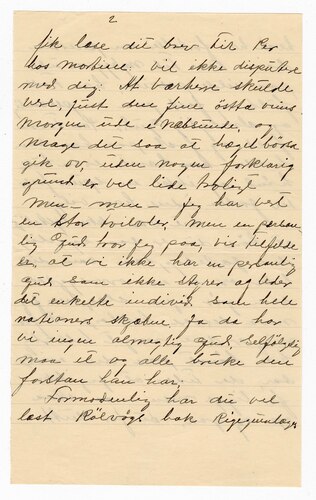 2
fik læse dit brev til Per
hos mortine. vil ikke disputere
med dig: At værhere skulde
vere, just den fine östta vins
morgen ude i næbsunde, og
mage det saa at hægelbörsa
gik ov, uden nogen forklarig
grund er vel lide troligt
Men — men — jeg har vert
en stor tvilvler, men en person
lig Gud tror jeg paa, vis tilfelde
er, at vi ikke har en personlig
gud som ikke styrer og leder
det enkelte individ, som hele
nationers skjæbne, Ja da har
vi ingen almegtig gud. Selfölgelig
maa et og alle bruke den
forstan han har;
Formodenlig har du vel
læst Rölvågs bok